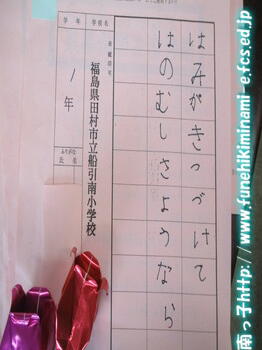 はみがきつづけて
はのむしさようなら
学年
学校名
全組記号
1年
福島県田村市立船引南小学校
ふりがな
氏名
南っ子http://www.funehikiminami-e.fcs.ed.jp